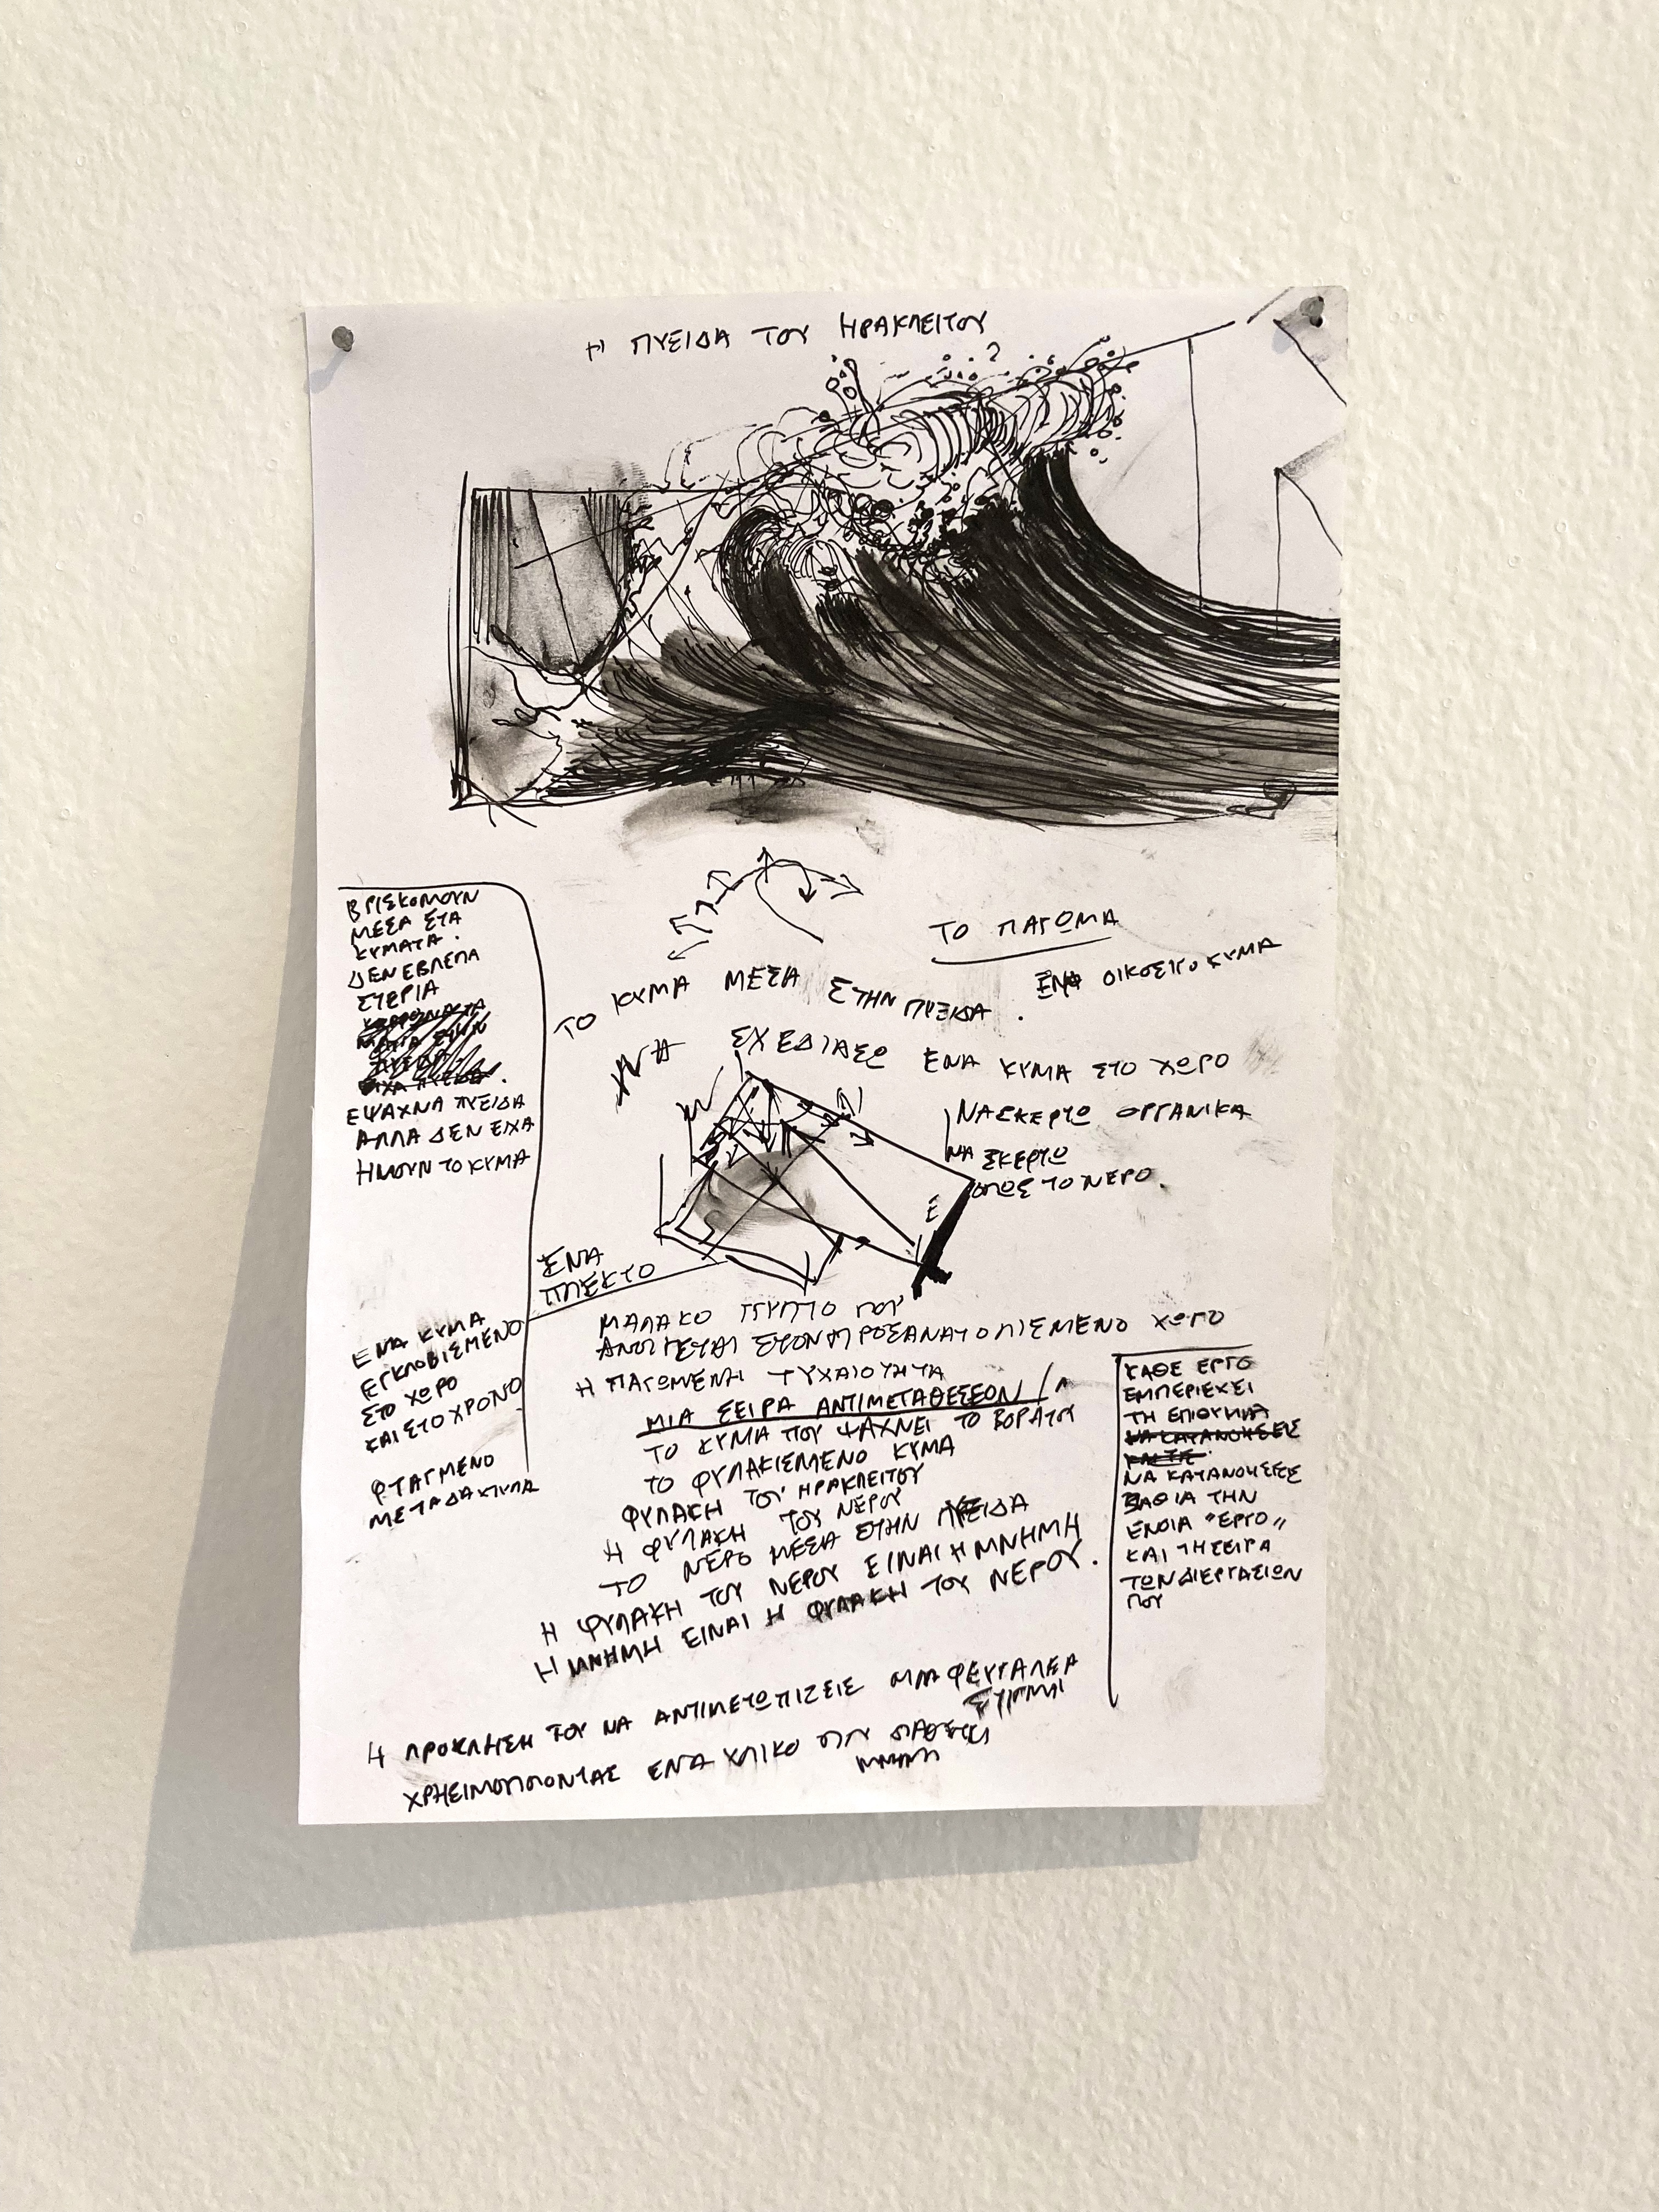 Η ΠΥΞΙΔΑ ΤΟΥ ΗΡΑΚΛΕΙΤΟΥ
ΒΡΙΣΚΟΜΟΥΝ
ΜΕΣΑ ΣΤΑ
ΚΥΜΑΤΑ.
ΔΕΝ ΕΒΛΕΠΑ
ΣΤΕΡΙΑ
ΕΨΑΧΝΑ ΠΥΞΙΔΑ
ΑΛΛΑ ΔΕΝ ΕΙΧΑ
ΗΜΟΥΝ ΤΟ ΚΥΜΑ
ΤΟ ΠΑΓΩΜΑ
ΕΝΑ ΟΙΚΟΣΙΤΟ ΚΥΜΑ
ΤΟ ΚΥΜΑ ΜΕΣΑ ΣΤΗΝ ΠΥΞΙΔΑ.
ΝΑ ΣΧΕΔΙΑΣΩ ΕΝΑ ΚΥΜΑ ΣΤΟ ΧΩΡΟ
ΝΑ ΣΚΕΡΤΩ ΟΡΓΑΝΙΚΑ
ΝΑ ΣΚΕΡΤΩ
ΟΠΩΣ ΤΟ ΝΕΡΟ.
ΕΝΑ
ΠΛΕΚΤΟ
ΕΝΑ ΚΥΜΑ
ΕΓΚΛΩΒΙΣΜΕΝΟ
ΣΤΟ ΧΩΡΟ
ΚΑΙ ΣΤΟ ΧΡΟΝΟ
ΦΤΑΓΜΕΝΟ
ΜΕ ΤΑ ΔΑΧΤΥΛΑ
ΜΑΛΑΚΟ ΓΛΥΠΤΟ ΠΟΥ
ΑΝΟΙΓΕΤΑΙ ΣΤΟΝ ΠΡΟΣΑΝΑΤΟΛΙΣΜΕΝΟ ΧΩΡΟ
Η ΠΑΓΩΜΕΝΗ ΤΥΧΑΙΟΤΗΤΑ
ΜΙΑ ΣΕΙΡΑ ΑΝΤΙΜΕΤΑΘΕΣΕΩΝ
ΤΟ ΚΥΜΑ ΠΟΥ ΨΑΧΝΕΙ ΤΟ ΒΟΡΑ ΤΟΥ
ΤΟ ΦΥΛΑΚΙΣΜΕΝΟ ΚΥΜΑ
ΦΥΛΑΚΗ ΤΟΥ ΗΡΑΚΛΕΙΤΟΥ
Η ΦΥΛΑΚΗ ΤΟΥ ΝΕΡΟΥ
ΤΟ ΝΕΡΟ ΜΕΣΑ ΣΤΗΝ ΠΥΞΙΔΑ
Η ΦΥΛΑΚΗ ΤΟΥ ΝΕΡΟΥ ΕΙΝΑΙ Η ΜΝΗΜΗ
Η ΜΝΗΜΗ ΕΙΝΑΙ Η ΦΥΛΑΚΗ ΤΟΥ ΝΕΡΟΥ.
ΚΑΘΕ ΕΡΓΟ
ΕΜΠΕΡΙΕΧΕΙ
ΤΗ ΕΠΙΘΥΜΙΑ
ΝΑ ΚΑΤΑΝΟΗΣΕΙΣ
ΝΑ ΚΑΤΑΝΟΗΣΕΙΣ
ΒΑΘΙΑ ΤΗΝ
ΕΝΟΙΑ "ΕΡΓΟ"
ΚΑΙ ΤΗ ΣΕΙΡΑ
ΤΩΝ ΔΙΕΡΓΑΣΙΩΝ
ΠΟΥ
Η ΠΡΟΚΛΗΣΗ ΤΟΥ ΝΑ ΑΝΤΙΜΕΤΩΠΙΖΕΙΣ ΜΙΑ ΦΕΥΓΑΛΕΑ
ΣΤΙΓΜΗ
ΧΡΗΣΙΜΟΠΟΙΟΝΤΑΣ ΕΝΑ ΥΛΙΚΟ ΠΟΥ ΔΙΑΘΕΤΕΙ
ΜΝΗΜΗ